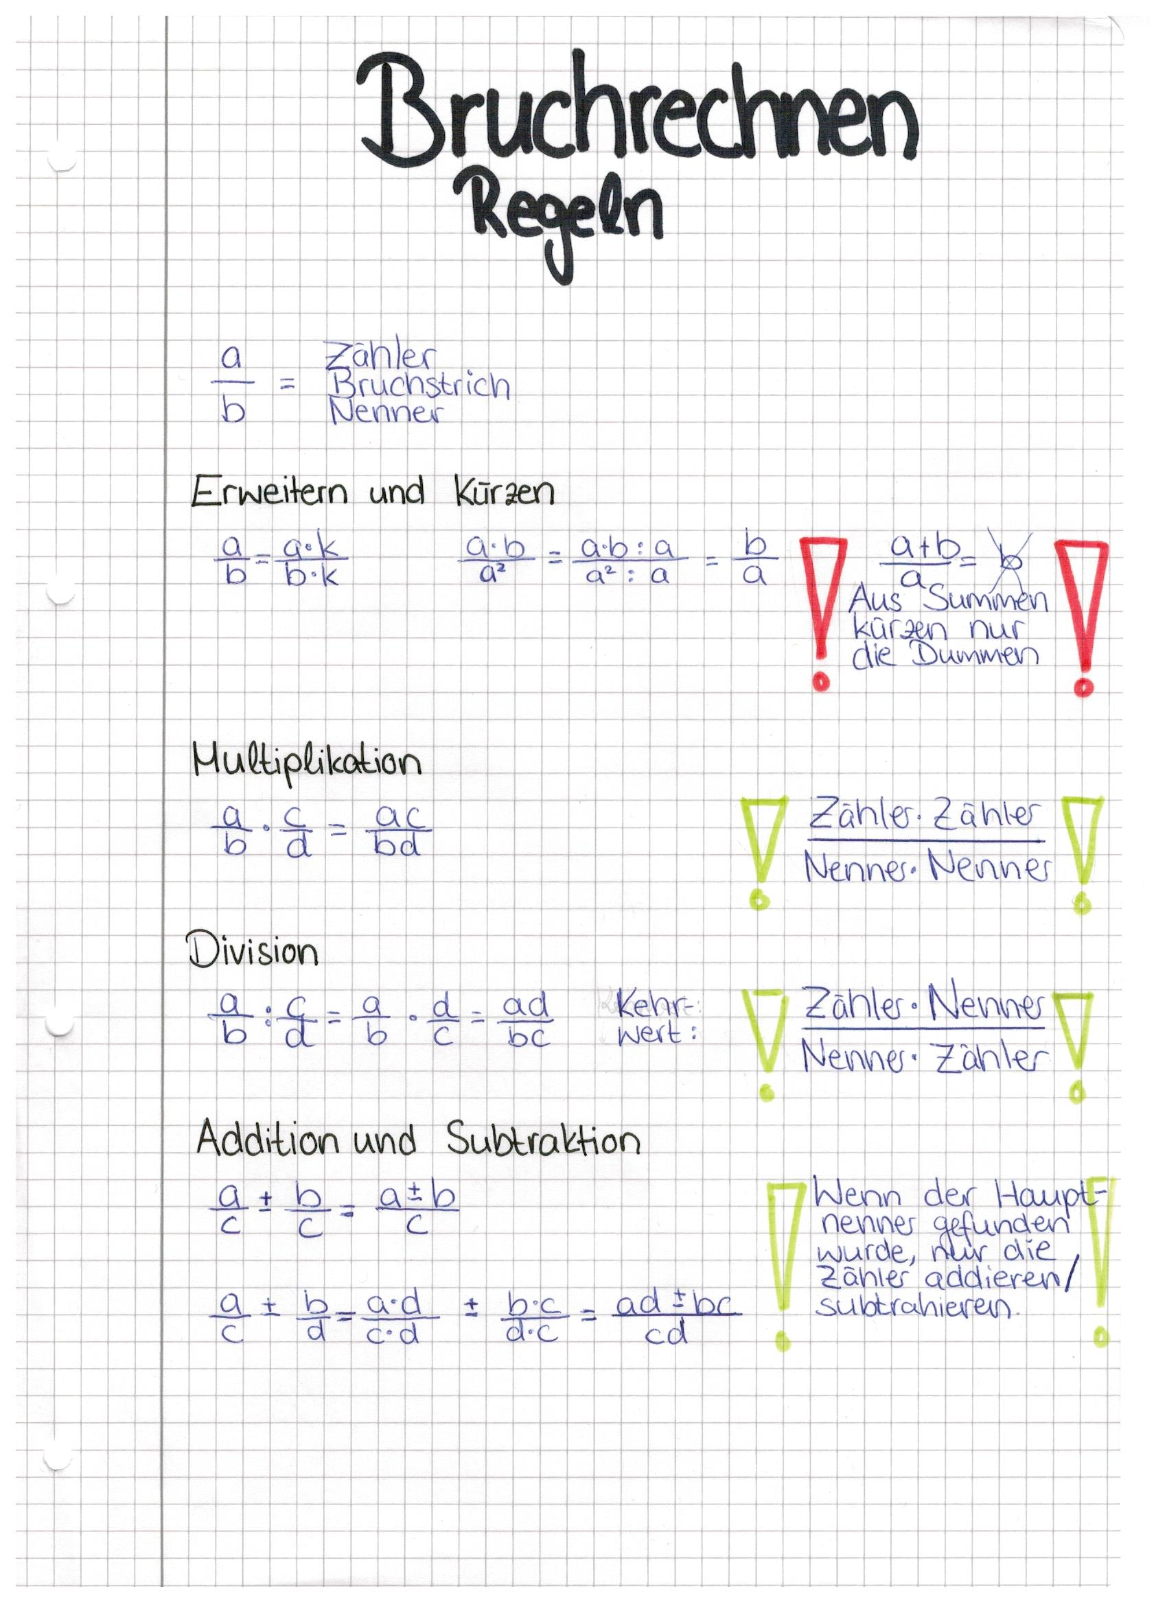 Bruchrechnen
Regeln
a/b = Zähler
Bruchstrich
Nenner
Erweitern und Kürzen
a/b = a·k/b·k    a·b/a² = a·b:a/a²:a = b/a    ! a+b/a = b !
Aus Summen
kürzen nur
die Dummen
Multiplikation
a/b · c/d = ac/bd    ! Zähler·Zähler/Nenner·Nenner !
Division
a/b : c/d = a/b · d/c = ad/bc    Kehr-
wert:    ! Zähler·Nenner/Nenner·Zähler !
Addition und Subtraktion
a/c ± b/c = a±b/c
! Wenn der Haupt- !
nenner gefunden
wurde, nur die
Zähler addieren/
subtrahieren.
a/c ± b/d = a·d/c·d ± b·c/d·c = ad±bc/cd